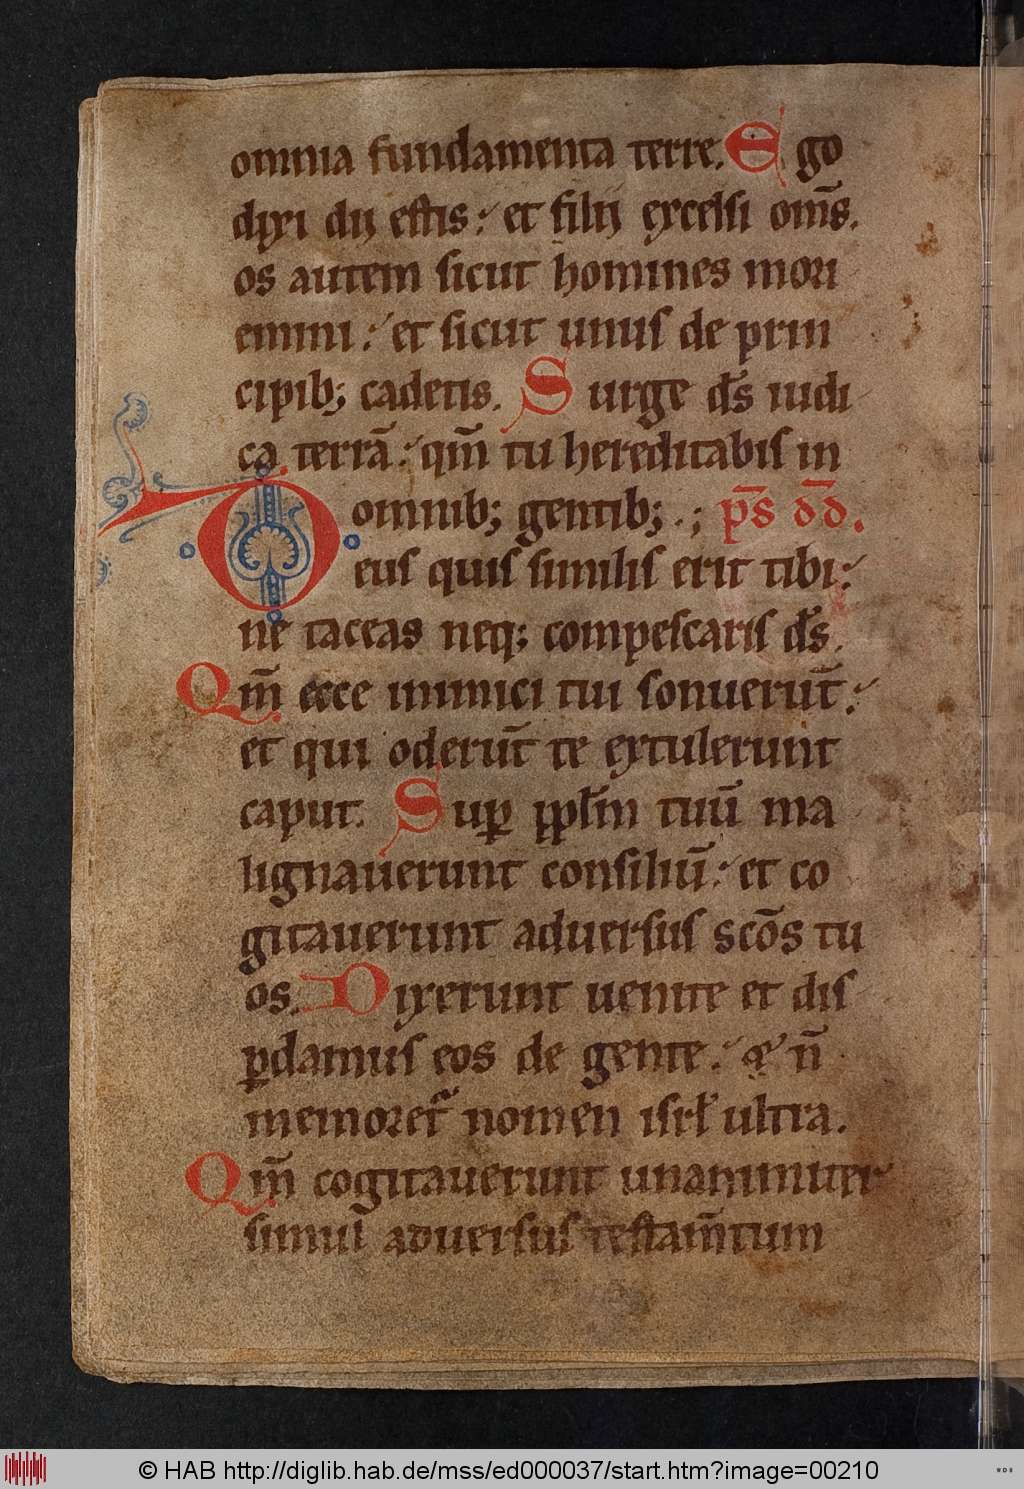 omnia fundamenta terre. Ego
dixi dij estis: et filij excelsi om̅s.
os autem sicut homines mori
emini: et sicut unus de prin
cipib; cadetis. Surge d̅s iudi
ca terrā: qm̅ tu hereditabis in
omnib; gentib; .; p̅s d̅d.
Deus quis similis erit tibi:
ne taceas neq; compescaris d̅s.
Qm̅ ecce inimici tui sonuerūt:
et qui oderūt te extulerunt
caput. Suꝑ ppl̅m tuū ma
lignauerunt consiliū: et co
gitauerunt aduersus sc̅o̅s tu
os. Dixerunt uenite et dis
ꝑdamus eos de gente: n̅
memoret᷑ nomen isrl̅ ultra.
Qm̅ cogitauerunt unanimiter
simul aduersus testam̅tum
© HAB http://diglib.hab.de/mss/ed000037/start.htm?image=00210